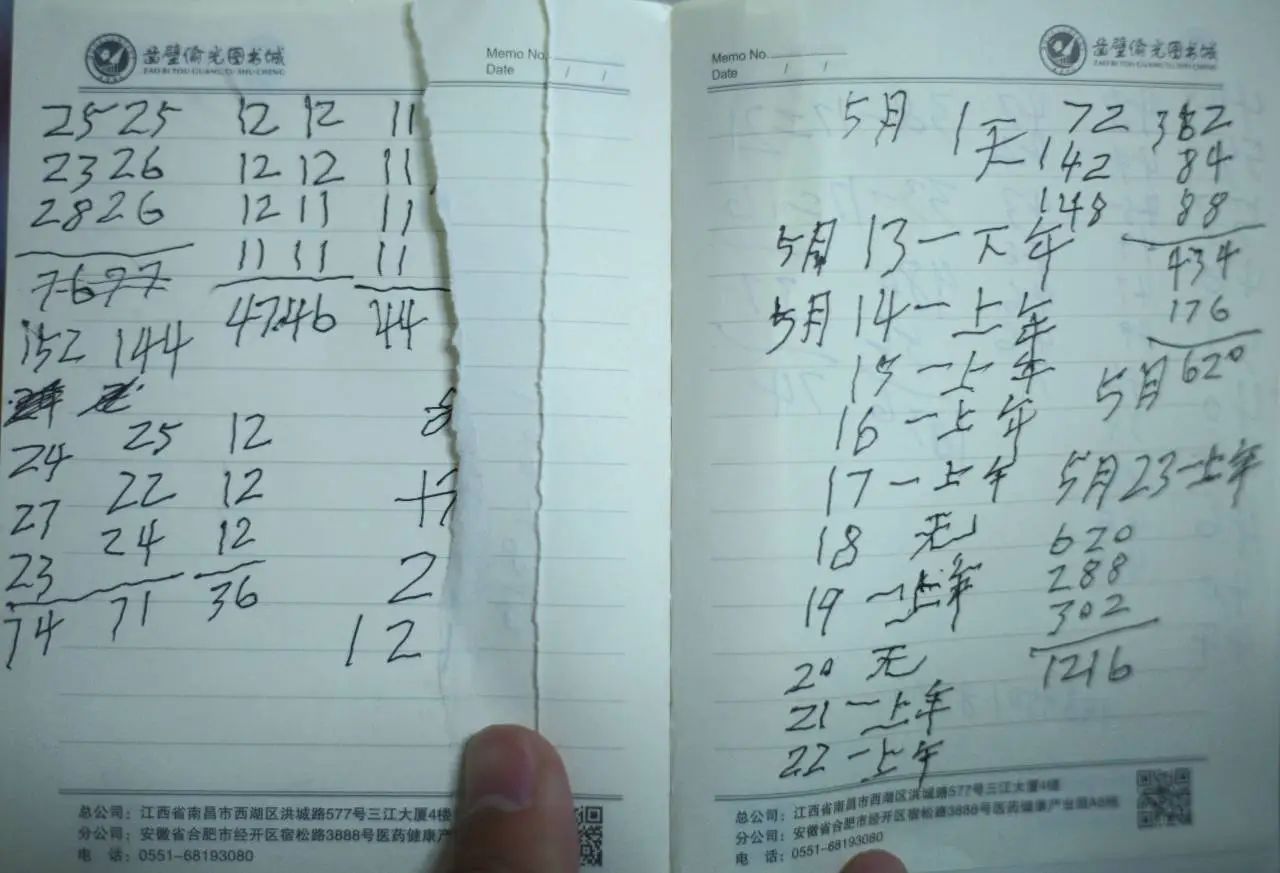 凿壁偷光图书城
ZAO BI TOU GUANG TU SHU CHENG
Memo No.
Date / /
25 25 12 12 11
23 26 12 12 11
28 26 12 11 11
11 11 11
76 77 47 46 44
152 144
25 12
24
22 12
27
24 12
23 2
74 71 36
12
总公司：江西省南昌市西湖区洪城路577号三江大厦4楼
分公司：安徽省合肥市经开区宿松路3888号医药健康产
电 话：0551-68193080
Memo No.
Date / /
凿壁偷光图书城
ZAO BI TOU GUANG TU SHU CHENG
5月 1天 72 382
142 84
148 88
5月 13一下午 434
5月 14一上午 176
15一上午 5月 620
16一上午
17一上午 5月23一上午
18 无 620
19一上午 288
302
20 无 1216
21一上午
22一上午
总公司：江西省南昌市西湖区洪城路577号三江大厦4楼
分公司：安徽省合肥市经开区宿松路3888号医药健康产业园A8栋
电 话：0551-68193080